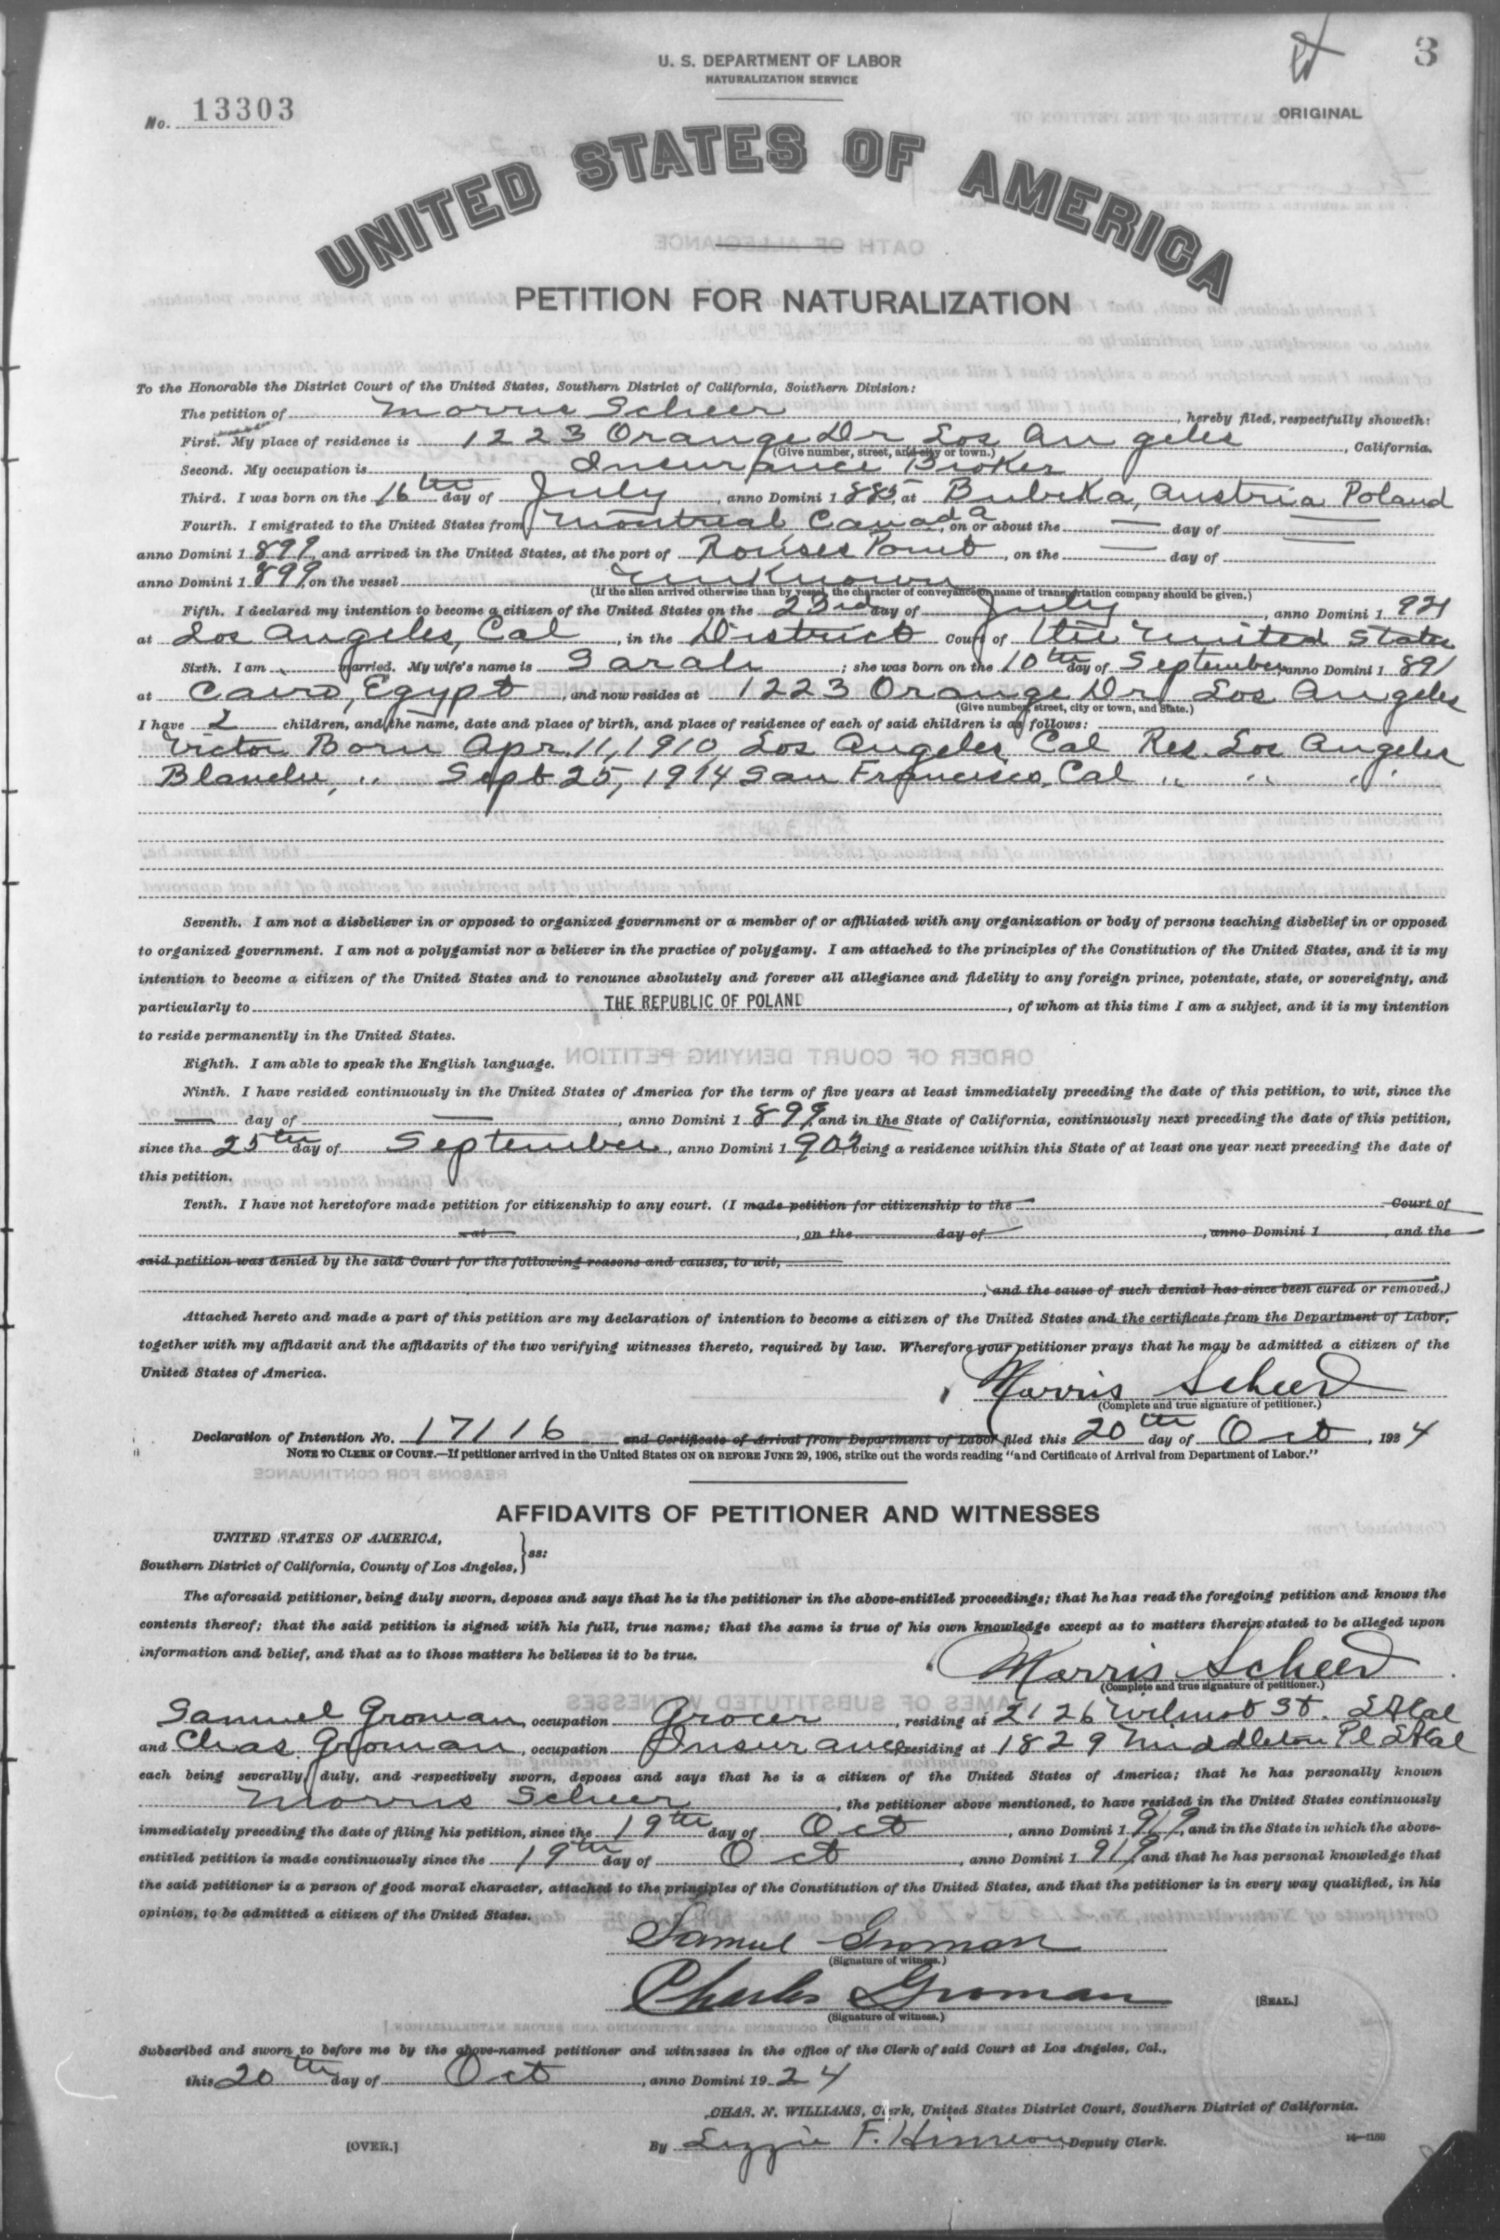 U. S. DEPARTMENT OF LABOR
NATURALIZATION SERVICE
3
No. 13303
ORIGINAL
UNITED STATES OF AMERICA
PETITION FOR NATURALIZATION
To the Honorable the District Court of the United States, Southern District of California, Southern Division:
The petition of Morris Scheer, hereby filed, respectfully showeth:
First. My place of residence is 1223 Orange Dr Los Angeles, California.
(Give number, street, and city or town.)
Second. My occupation is Insurance Broker
Third. I was born on the 16th day of July, anno Domini 1 885, at Bubrka, Austria Poland
Fourth. I emigrated to the United States from Montreal Canada, on or about the — day of —
anno Domini 1 899, and arrived in the United States, at the port of Rouses Point, on the — day of —
anno Domini 1 899, on the vessel Unknown
(If the alien arrived otherwise than by vessel, the character of conveyance or name of transportation company should be given.)
Fifth. I declared my intention to become a citizen of the United States on the 23rd day of July, anno Domini 1 921
at Los Angeles, Cal, in the District Court of the United States
Sixth. I am married. My wife's name is Sarah; she was born on the 10th day of September anno Domini 1 891
at Cairo, Egypt, and now resides at 1223 Orange Dr, Los Angeles
(Give number, street, city or town, and State.)
I have 2 children, and the name, date and place of birth, and place of residence of each of said children is as follows:
Victor Born Apr. 11, 1910 Los Angeles Cal Res. Los Angeles
Blanche, " Sept 25, 1914 San Francisco, Cal " " "
Seventh. I am not a disbeliever in or opposed to organized government or a member of or affiliated with any organization or body of persons teaching disbelief in or opposed
to organized government. I am not a polygamist nor a believer in the practice of polygamy. I am attached to the principles of the Constitution of the United States, and it is my
intention to become a citizen of the United States and to renounce absolutely and forever all allegiance and fidelity to any foreign prince, potentate, state, or sovereignty, and
particularly to THE REPUBLIC OF POLAND, of whom at this time I am a subject, and it is my intention
to reside permanently in the United States.
Eighth. I am able to speak the English language.
Ninth. I have resided continuously in the United States of America for the term of five years at least immediately preceding the date of this petition, to wit, since the
— day of —, anno Domini 1 899, and in the State of California, continuously next preceding the date of this petition,
since the 25th day of September, anno Domini 1 902 being a residence within this State of at least one year next preceding the date of
this petition.
Tenth. I have not heretofore made petition for citizenship to any court. (I made petition for citizenship to the Court of
at, on the day of, anno Domini 1, and the
said petition was denied by the said Court for the following reasons and causes, to wit,
, and the cause of such denial has since been cured or removed.)
Attached hereto and made a part of this petition are my declaration of intention to become a citizen of the United States and the certificate from the Department of Labor,
together with my affidavit and the affidavits of the two verifying witnesses thereto, required by law. Wherefore your petitioner prays that he may be admitted a citizen of the
United States of America.
Morris Scheer
(Complete and true signature of petitioner.)
Declaration of Intention No. 17116 and Certificate of Arrival from Department of Labor filed this 20th day of Oct, 1924
NOTE TO CLERK OF COURT.—If petitioner arrived in the United States ON OR BEFORE JUNE 29, 1906, strike out the words reading "and Certificate of Arrival from Department of Labor."
AFFIDAVITS OF PETITIONER AND WITNESSES
UNITED STATES OF AMERICA,
Southern District of California, County of Los Angeles, } ss:
The aforesaid petitioner, being duly sworn, deposes and says that he is the petitioner in the above-entitled proceedings; that he has read the foregoing petition and knows the
contents thereof; that the said petition is signed with his full, true name; that the same is true of his own knowledge except as to matters therein stated to be alleged upon
information and belief, and that as to those matters he believes it to be true.
Morris Scheer
(Complete and true signature of petitioner.)
Samuel Groman, occupation Grocer, residing at 2126 Wilmot St. LA Cal
and Chas. Groman, occupation Insurance, residing at 1829 Middleton Pl LA Cal
each being severally, duly, and respectively sworn, deposes and says that he is a citizen of the United States of America; that he has personally known
Morris Scheer, the petitioner above mentioned, to have resided in the United States continuously
immediately preceding the date of filing his petition, since the 19th day of Oct, anno Domini 1 919, and in the State in which the above-
entitled petition is made continuously since the 19th day of Oct, anno Domini 1 919 and that he has personal knowledge that
the said petitioner is a person of good moral character, attached to the principles of the Constitution of the United States, and that the petitioner is in every way qualified, in his
opinion, to be admitted a citizen of the United States.
Samuel Groman
(Signature of witness.)
Charles Groman
(Signature of witness.)
[SEAL.]
Subscribed and sworn to before me by the above-named petitioner and witnesses in the office of the Clerk of said Court at Los Angeles, Cal.,
this 20th day of Oct, anno Domini 19 24
CHAS. N. WILLIAMS, Clerk, United States District Court, Southern District of California.
[OVER.]
By Lizzie F. Deputy Clerk.